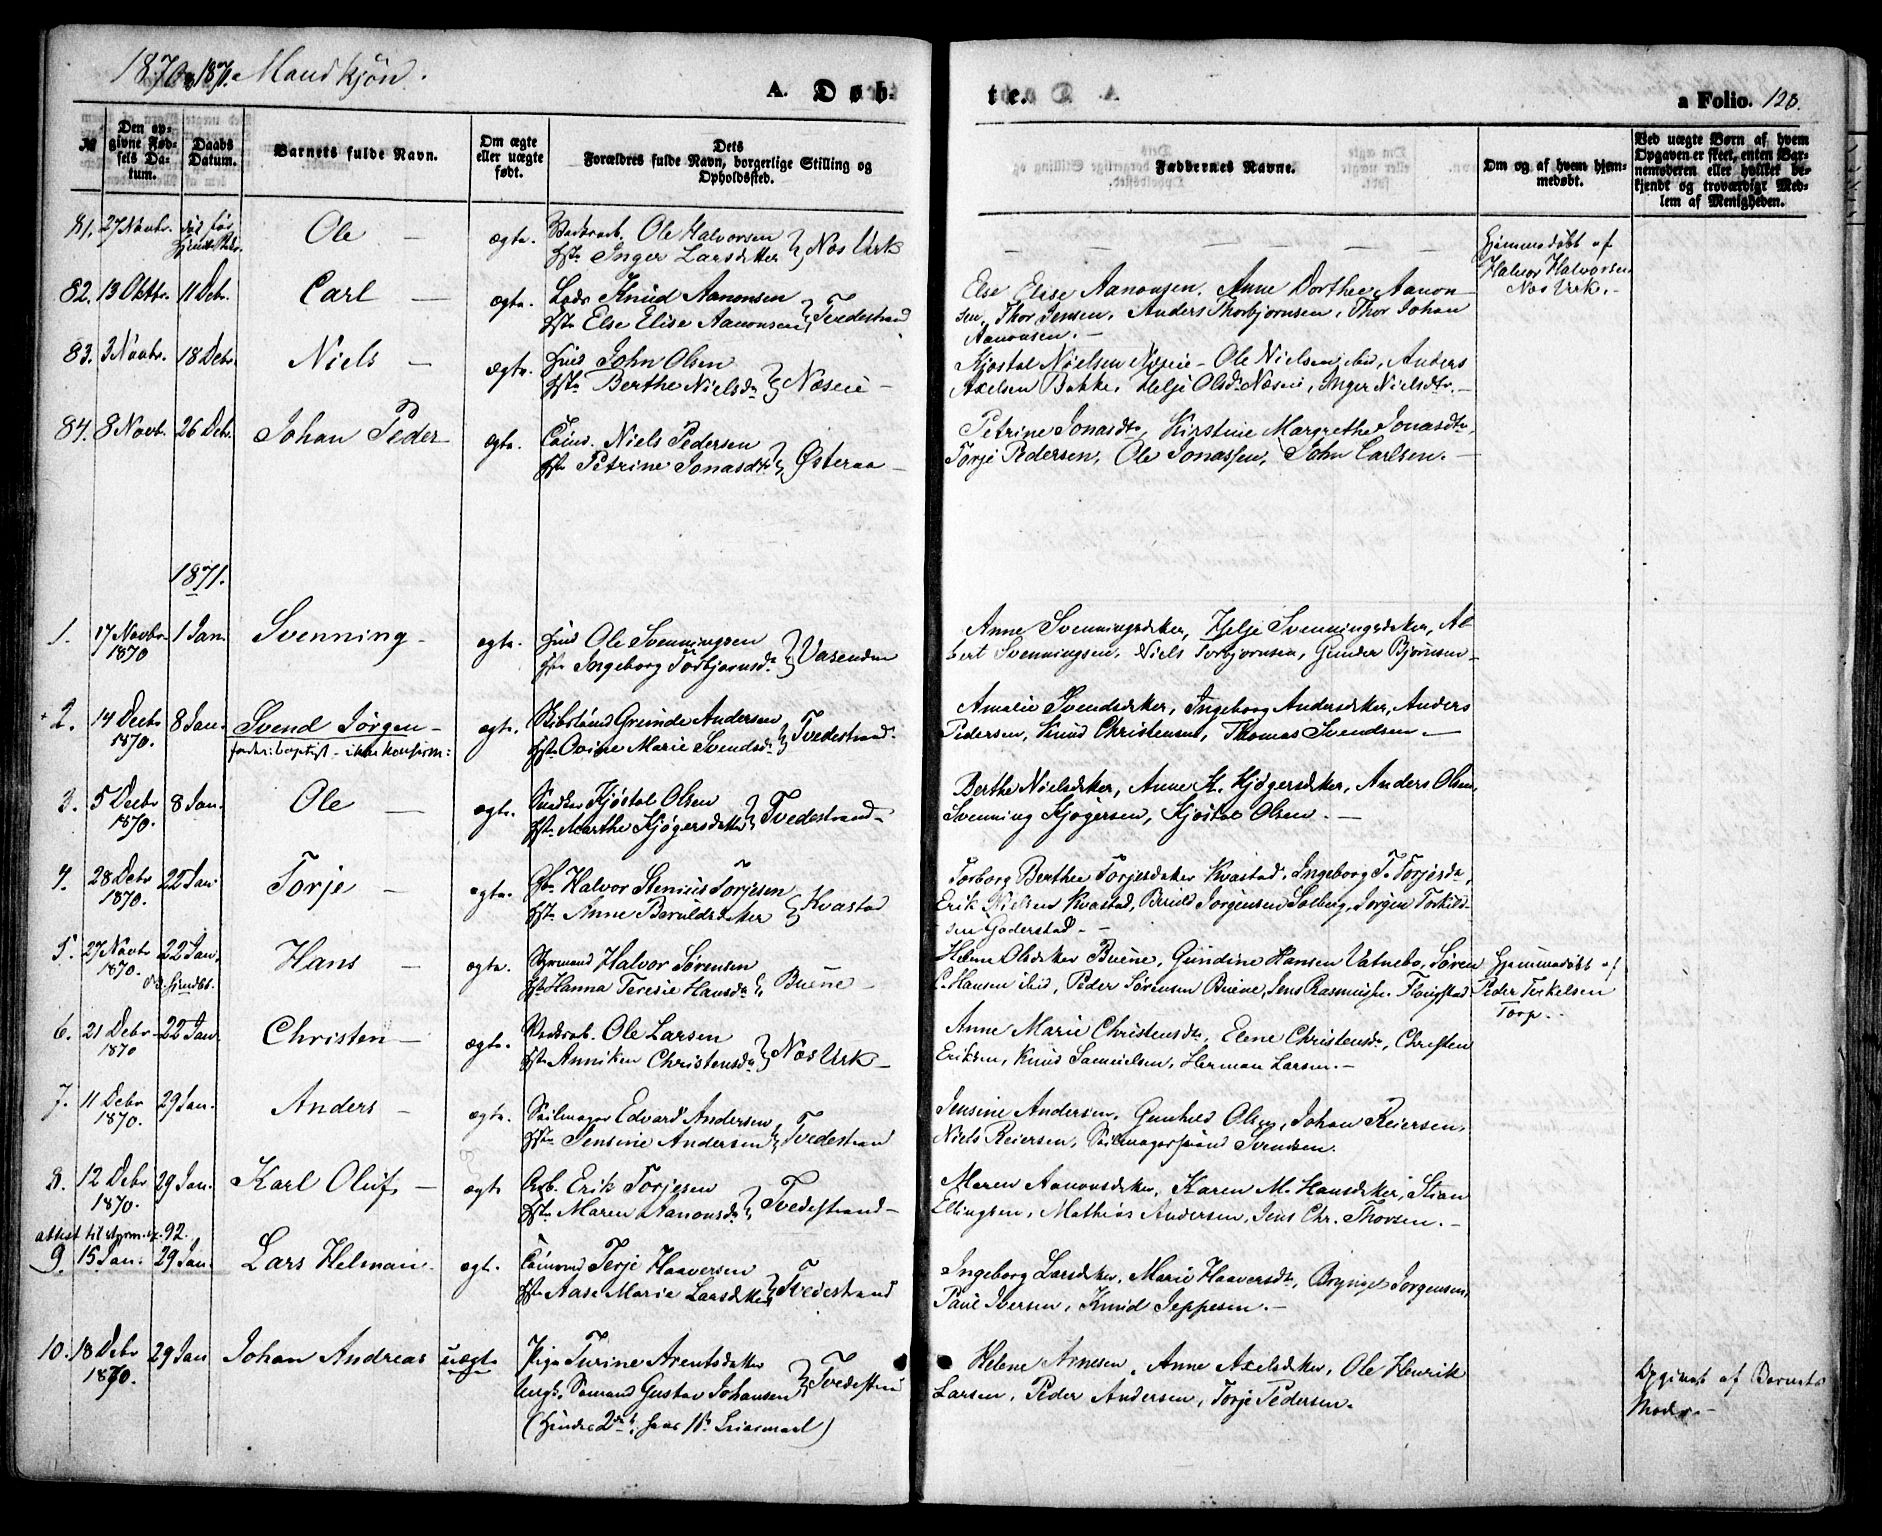 1870 & 1871. Mandkjön.
A. Døb-
te.
a Folio. 128.
№
Den opgivne Fødsels Datum.
Daabs Datum.
Barnets fulde Navn.
Om ægte eller uægte født.
Dets Forældres fulde Navn, borgerlige Stilling og Opholdssted.
Faddernes Navne.
Om og af hvem hjemmedøbt.
Ved uægte Børn af hvem Opgaven er skeet, enten Barnemoderen eller hvilket bekjendt og troværdigt Medlem af Menigheden.
81. 27 Novbr. Ole – ægte. Ole Halvorsen
Inger Larsdatter } Næs Værk
Hjemmedöbt af
Halvor Halvorsen
Næs Værk. –
82. 13 Oktbr. 11 Debr. Carl – ægte. Knud Aanonsen
Else Elise Aanonsen } Tvedestrand
Else Elise Aanonsen. Anne Dorthee Aanon-
sen, Thor Jensen, Anders Thorbjornsen, Thor Johan
Aanonsen. –
83. 3 Novbr. 18 Debr. Niels – ægte. John Olsen
Berthe Nielsdr } Næseie –
Kjostol Nielsen Næseie – Ole Nielsen ibid, Anders
Axelsen Bakke, Helje Olsdr Næseie, Inger Nielsdtr. –
84. 8 Novb. 26 Debr. Johan Peder – ægte. Niels Pedersen
Petrine Jonasdtr } Østeraa –
Petrine Jonasdtr, Kirstine Margrethe Jonasdtr,
Torje Pedersen, Ole Jonassen, John Carlsen. –
1871.
1. 17 Novbr 1870 1 Jan. Svenning – ægte. Ole Svenningsen
Ingeborg Torbjørnsdr } Vasenden
Anne Svenningsdatter, Helje Svenningsdatter, Al-
bert Svenningsen, Niels Torbjornsen, Gunder Bjørnsen –
2. 14 Decbr 1870. 8 Jan. Svend Jørgen – ægte. Grunde Andersen
forhen baptist – ikke konfirm:
Ovine Marie Svendsdr } Tvedestrand.
Amalie Svendsdatter, Ingeborg Andersdatter, Anders
Pedersen, Knud Christensen, Thomas Svendsen. –
3. 5 Decbr 1870. 8 Jan. Ole – ægte. Kjöstol Olsen
Marthe Kjøgersdatter } Tvedestrand –
Berthe Nielsdatter, Anne K. Kjøgersdatter, Anders Olsen,
Svenning Kjøgersen, Kjöstol Olsen. –
4. 28 Debr 1870. 22 Jan. Torje – ægte. Gb. Halvor Stenius Torjesen
Anne Beruldsdatter } Kvastad
Torborg Berthee Torjesdatter Kvastad, Ingeborg T. Torjesdr,
Erik Nielsen Kvastad, Beruld Jörgensen Solberg, Jörgen Torkild-
sen Goderstad. –
5. 27 Novbr 1870. 22 Jan. Hans – ægte. Styrmand Halvor Sørensen
Hanna Teresie Hansdr } Buene –
Helene Olsdatter Buene, Gundine Hansen Vatnebo, Søren
C. Hansen ibid, Peder Sörensen Buene, Jens Rasmussen Flougstad
Hjemmedöbt af
Peder Terkelsen
Torp. –
6. 21 Debr 1870 22 Jan. Christen – ægte. Ole Larsen
Anniken Christensdr } Næs Værk –
Anne Marie Christensdr, Elene Christensdr, Christen
Eriksen, Knud Samuelsen, Herman Larsen. –
7. 11 Debr 1870. 29 Jan. Anders – ægte. Seilmager Edvard Andersen,
Jensine Andersen } Tvedestrand
Jensine Andersen, Gunhild Olsen, Johan Reiersen,
Niels Reiersen, Svendsen.
8. 12 Debr 1870. 29 Jan. Karl Oluf – ægte Arb. Erik Torjesen
Maren Aanonsdr } Tvedestrand –
Maren Aanonsdatter, Karen M. Hansdatter, Stian
Ellingsen, Mathias Andersen, Jens Chr. Thorsen. –
attest til styrm. ex. 92.
9. 15 Jan. 29 Jan Lars Helman – ægte. Terje Haaversen
Aase Marie Larsdatter } Tvedestrand
Ingeborg Larsdatter, Marie Haaversdr, Brynjel Jorgensen,
Paul Iversen, Knud Jeppesen. –
10. 18 Debr 1870. 29 Jan Johan Andreas uægte Pige Turine Arentsdatter
Ungk. Sømand Gustav Johansen } Tvedestrand
(Hendes 2det, hans 1ste Leiermaal)
Helene Arnesen, Anne Axelsdatter, Ole Henrik
Larsen, Peder Andersen, Torje Pedersen.
Opgivet af Barnets
Moder –